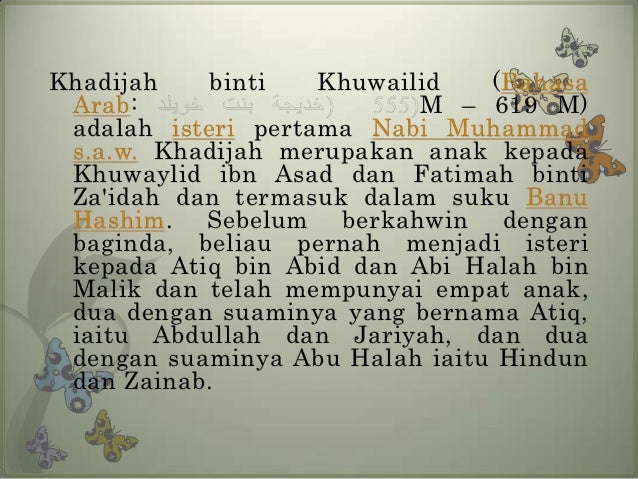 Khadijah binti Khuwailid (Bahasa
Arab: خديجة بنت خويلد) 555)M – 619 M)
adalah isteri pertama Nabi Muhammad
s.a.w. Khadijah merupakan anak kepada
Khuwaylid ibn Asad dan Fatimah binti
Za'idah dan termasuk dalam suku Banu
Hashim. Sebelum berkahwin dengan
baginda, beliau pernah menjadi isteri
kepada Atiq bin Abid dan Abi Halah bin
Malik dan telah mempunyai empat anak,
dua dengan suaminya yang bernama Atiq,
iaitu Abdullah dan Jariyah, dan dua
dengan suaminya Abu Halah iaitu Hindun
dan Zainab.